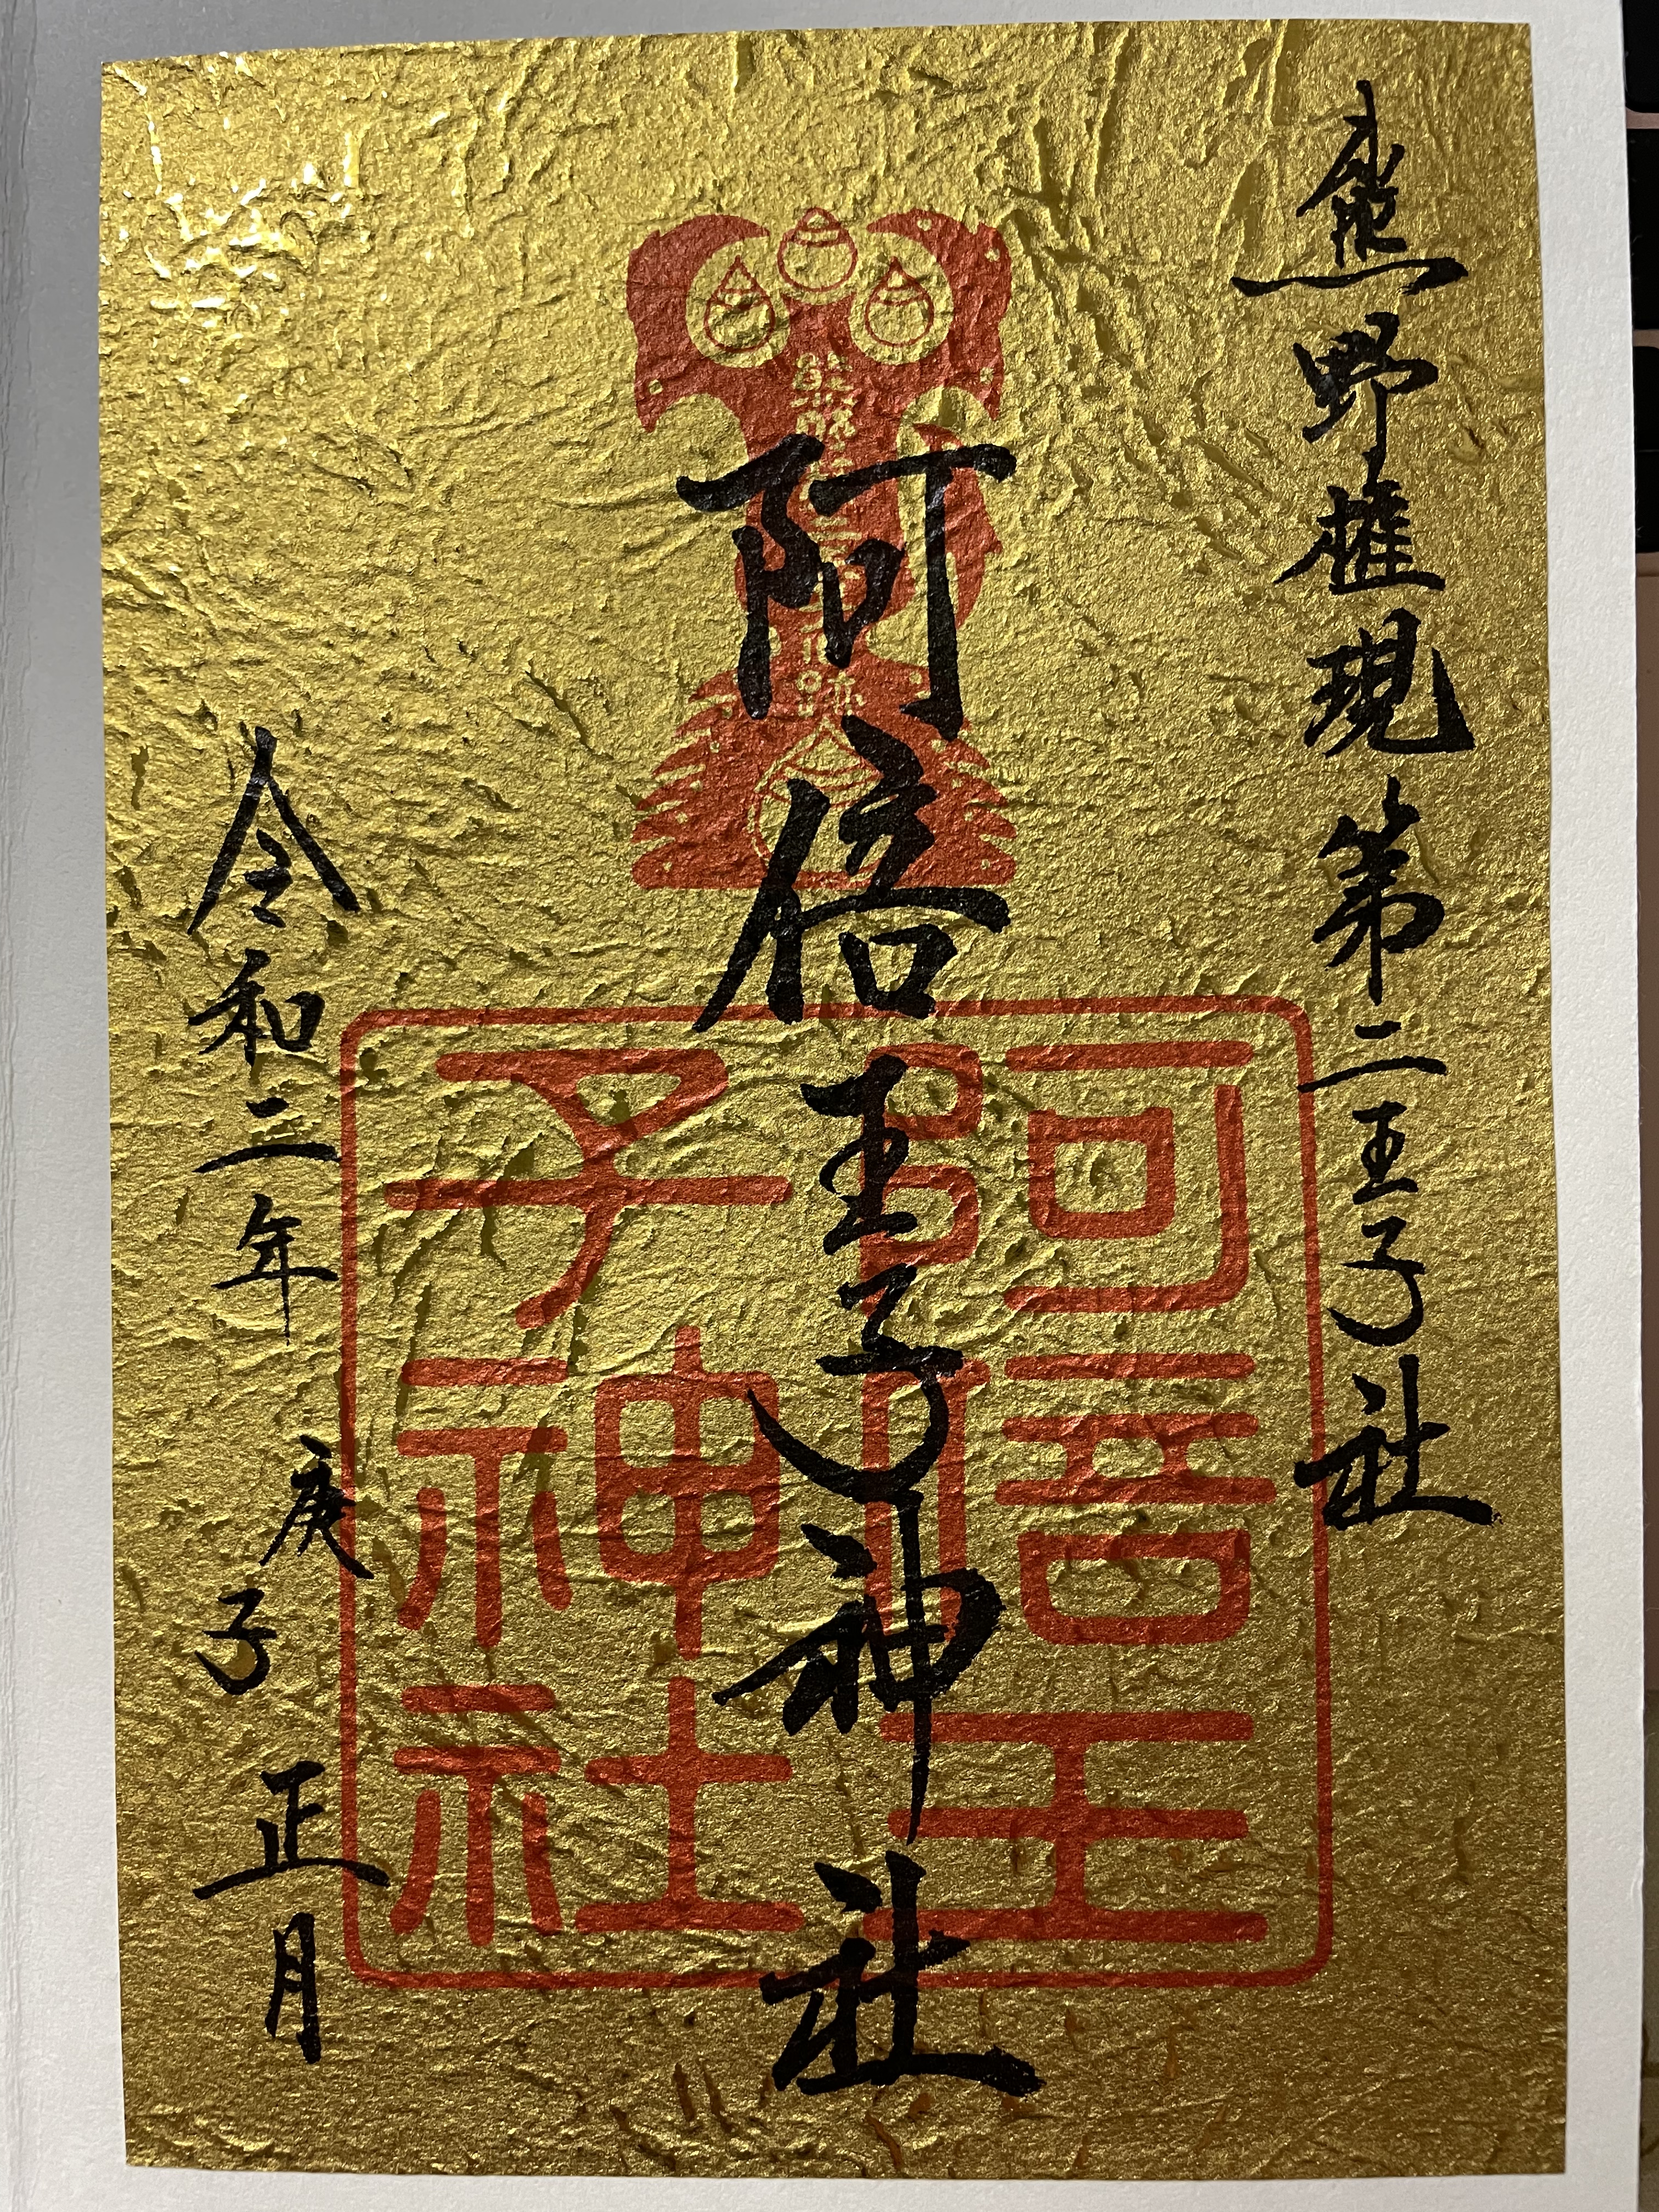 熊野権現第二王子社
阿倍王子神社
令和二年庚子正月
阿倍王
子神社